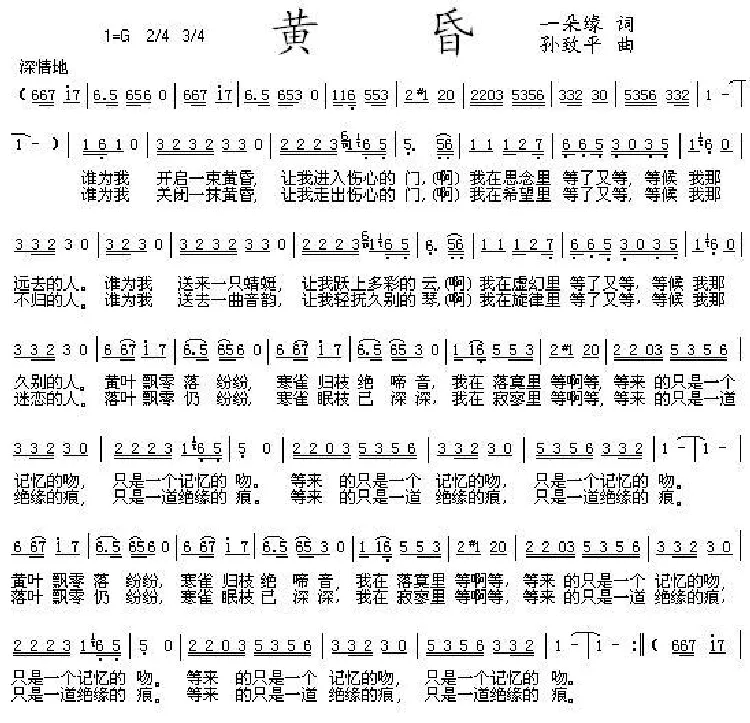 黄昏
1=G 2/4 3/4
一朵缘 词
孙致平 曲
深情地
( 667 i7 | 6.5 656 0 | 667 i7 | 6.5 653 0 | 116 553 | 2 #1 20 | 2203 5356 | 332 30 | 5356 332 | 1 - |
1 - ) | 1 6 1 0 | 3 2 3 2 3 3 0 | 2 2 2 3 1 6 5 | 5. (56) | 1 1 1 2 7 | 6 6 5 3 0 3 5 | 1 6 0 |
谁为我 开启一束黄昏, 让我进入伤心的 门, (啊) 我在思念里 等了又等, 等候 我那
谁为我 关闭一抹黄昏, 让我走出伤心的 门, (啊) 我在希望里 等了又等, 等候 我那
3 3 2 3 0 | 1 6 1 0 | 3 2 3 2 3 3 0 | 2 2 2 3 1 6 5 | 6. (56) | 1 1 1 2 7 | 6 6 5 3 0 3 5 | 1 6 0 |
远去的人。 谁为我 送来一只蜻蜓, 让我跃上多彩的 云, (啊) 我在虚幻里 等了又等, 等候 我那
不归的人。 谁为我 送去一曲音韵, 让我轻抚久别的 琴, (啊) 我在旋律里 等了又等, 等候 我那
3 3 2 3 0 | 6 67 i 7 | 6.5 656 0 | 6 67 i 7 | 6.5 65 3 0 | 1 16 5 5 3 | 2 #1 20 | 2 2 03 5 3 5 6 |
久别的人。 黄叶 飘零 落 纷纷, 寒雀 归枝 绝 啼 音, 我在 落寞里 等啊等, 等来 的只是一个
迷恋的人。 落叶 飘零 仍 纷纷, 寒雀 眠枝 已 深 深, 我在 寂寥里 等啊等, 等来 的只是一道
3 3 2 3 0 | 2 2 2 3 1 6 5 | 5 0 | 2 2 0 3 5 3 5 6 | 3 3 2 3 0 | 5 3 5 6 3 3 2 | 1 - | 1 - |
记忆的吻, 只是一个记忆的 吻。 等来 的只是一个 记忆的吻, 只是一个记忆的 吻。
绝缘的痕, 只是一道绝缘的 痕。 等来 的只是一道 绝缘的痕, 只是一道绝缘的 痕。
6 67 i 7 | 6.5 656 0 | 6 67 i 7 | 6.5 65 3 0 | 1 16 5 5 3 | 2 #1 20 | 2 2 0 3 5 3 5 6 | 3 3 2 3 0 |
黄叶 飘零 落 纷纷, 寒雀 归枝 绝 啼 音, 我在 落寞里 等啊等, 等来 的只是一个 记忆的吻,
落叶 飘零 仍 纷纷, 寒雀 眠枝 已 深 深, 我在 寂寥里 等啊等, 等来 的只是一道 绝缘的痕,
2 2 2 3 1 6 5 | 5 0 | 2 2 0 3 5 3 5 6 | 3 3 2 3 0 | 5 3 5 6 3 3 2 | 1 - | 1 - :‖ ( 667 i7
只是一个记忆的 吻。 等来 的只是一个 记忆的吻, 只是一个记忆的 吻。
只是一道绝缘的 痕。 等来 的只是一道 绝缘的痕, 只是一道绝缘的 痕。